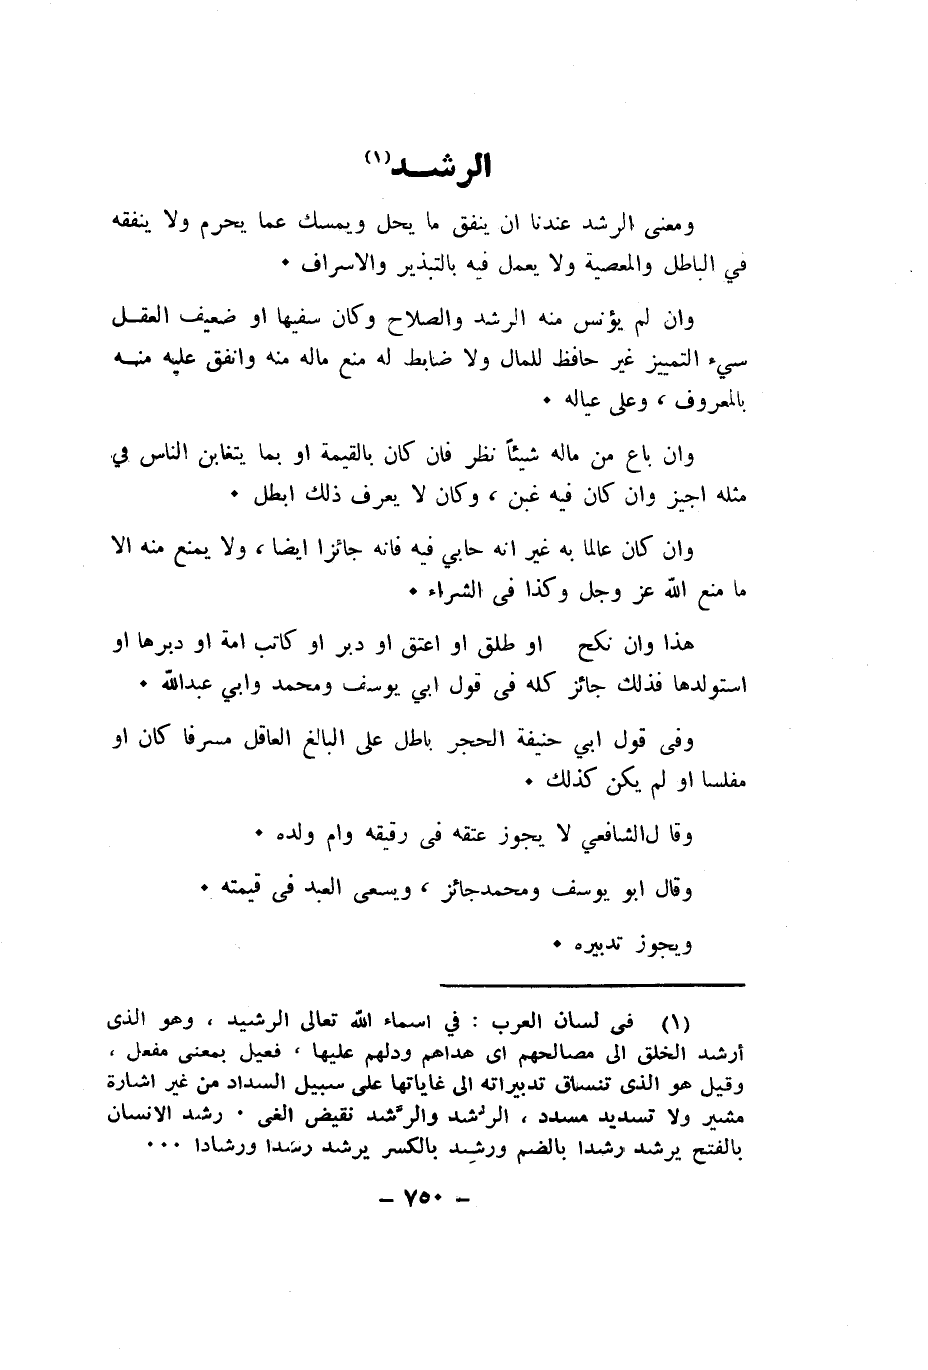 الرشـــد(١)
ومعنى الرشد عندنا ان ينفق ما يحل ويمسك عما يحرم ولا ينفقه
في الباطل والمعصية ولا يعمل فيه بالتبذير والاسراف ٠
وان لم يؤنس منه الرشد والصلاح وكان سفيها او ضعيف العقـل
سيء التمييز غير حافظ للمال ولا ضابط له منع ماله منه وانفق عليه منـه
بالمعروف ، وعلى عياله ٠
وان باع من ماله شيئاً نظر فان كان بالقيمة او بما يتغابن الناس في
مثله اجيز وان كان فيه غبن ، وكان لا يعرف ذلك ابطل ٠
وان كان عالما به غير انه حابي فيه فانه جائزا ايضا ، ولا يمنع منه الا
ما منع الله عز وجل وكذا فى الشراء ٠
هذا وان نكح او طلق او اعتق او دبر او كاتب امة او دبرها او
استولدها فذلك جائز كله فى قول ابي يوسف ومحمد وابي عبدالله ٠
وفى قول ابي حنيفة الحجر باطل على البالغ العاقل مسرفا كان او
مفلسا او لم يكن كذلك ٠
وقا لالشافعي لا يجوز عتقه فى رقيقه وام ولده ٠
وقال ابو يوسف ومحمدجائز ، ويسعى العبد فى قيمته ٠
ويجوز تدبيره ٠
(١) فى لسان العرب : في اسماء الله تعالى الرشيد ، وهو الذى
أرشد الخلق الى مصالحهم اى هداهم ودلهم عليها ، فعيل بمعنى مفعل ،
وقيل هو الذى تنساق تدبيراته الى غاياتها على سبيل السداد من غير اشارة
مشير ولا تسديد مسدد ، الرُشد والرَشد نقيض الغى ٠ رشد الانسان
بالفتح يرشد رشدا بالضم ورشد بالكسر يرشد رشدا ورشادا ٠٠٠
– ٧٥٠ –